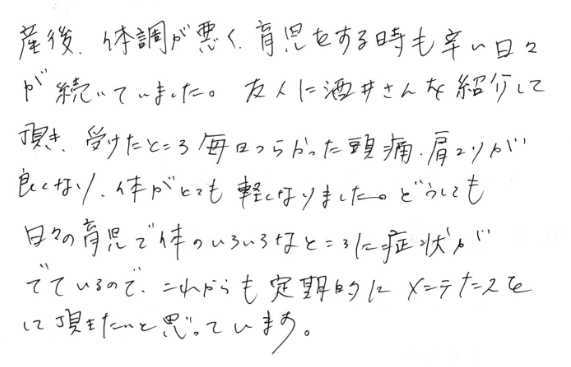 産後、体調が悪く、育児をする時も辛い日々
が続いていました。友人に酒井さんを紹介して
頂き、受けたところ毎日つらかった頭痛、肩コリが
良くなり、体がとても軽くなりました。どうしても
日々の育児で体のいろいろなところに症状が
でているので、これからも定期的にメンテナンスを
して頂きたいと思っています。